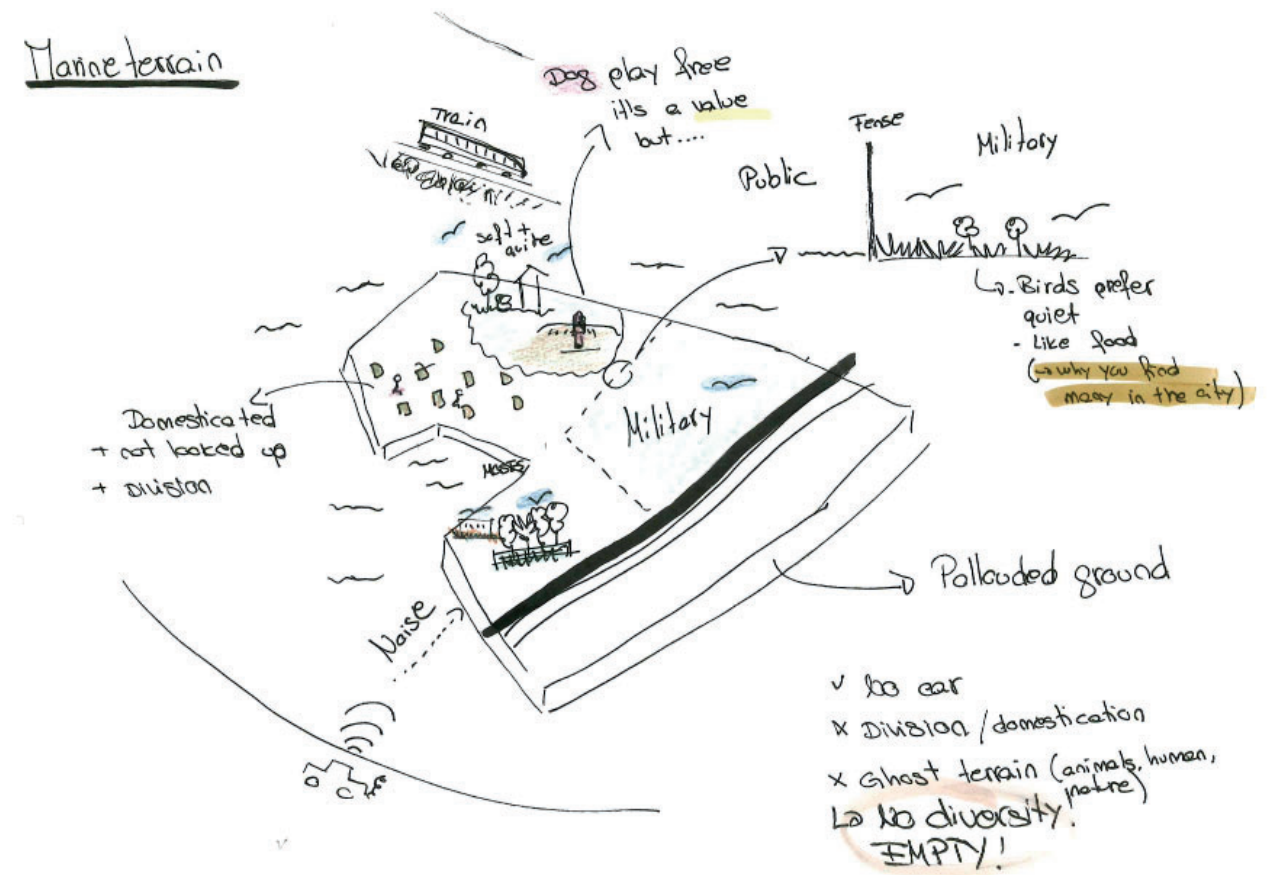 Marineterrain
Dog play free
it's a value
but....
Train
soft +
quite
Public
Fense
Military
- Birds prefer
quiet
- Like food
(→ why you find
many in the city)
Domesticated
+ not looked up
+ Division
Military
Noise
Pollouded ground
✓ No car
x Division / domestication
x Ghost terrain (animals, human,
nature)
↳ No diversity!
EMPTY!